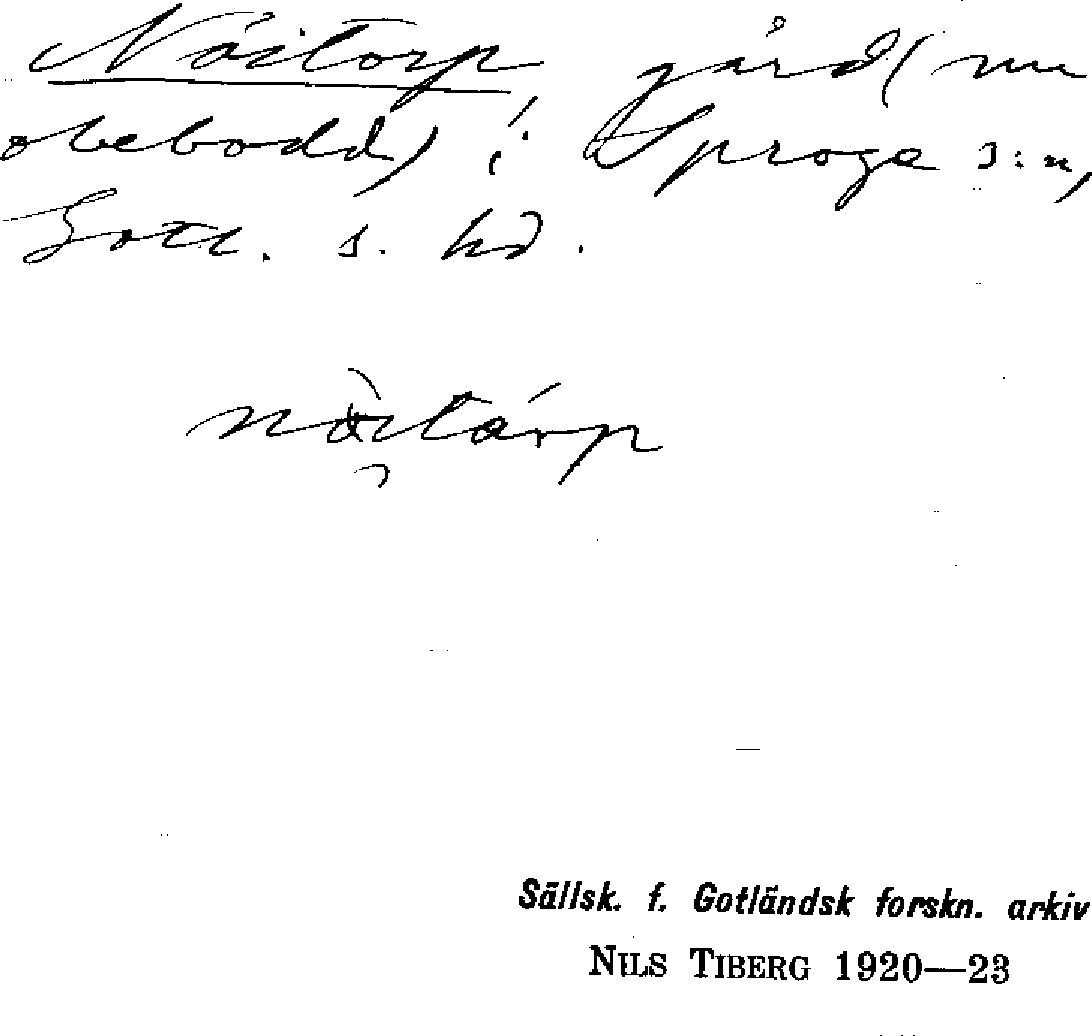 Nöitorp gård (nu
obebodd) i Sproge s:n,
Gotl. s. hd.
Sällsk. f. Gotländsk forskn. arkiv
NILS TIBERG 1920—23